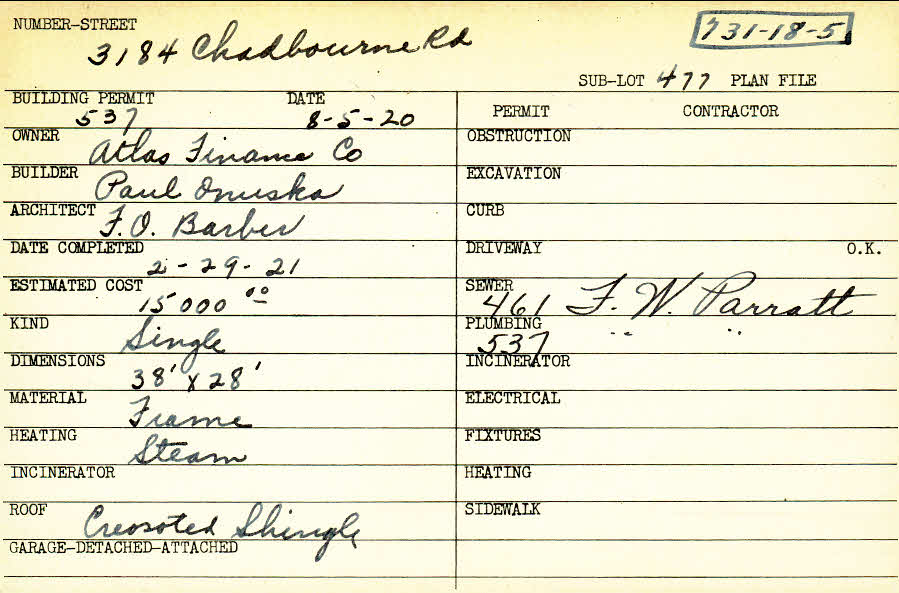 NUMBER-STREET
3184 Chadbourne Rd
731-18-5
SUB-LOT 477 PLAN FILE
BUILDING PERMIT DATE
537 8-5-20
OWNER
Atlas Finance Co
BUILDER
Paul Onuska
ARCHITECT
F.O. Barber
DATE COMPLETED
2-29-21
ESTIMATED COST
15000 00
KIND
Single
DIMENSIONS
38' x 28'
MATERIAL
Frame
HEATING
Steam
INCINERATOR
ROOF
Creosoted Shingle
GARAGE-DETACHED-ATTACHED
PERMIT CONTRACTOR
OBSTRUCTION
EXCAVATION
CURB
DRIVEWAY O.K.
SEWER
461 F. W. Parratt
PLUMBING
537 " "
INCINERATOR
ELECTRICAL
FIXTURES
HEATING
SIDEWALK